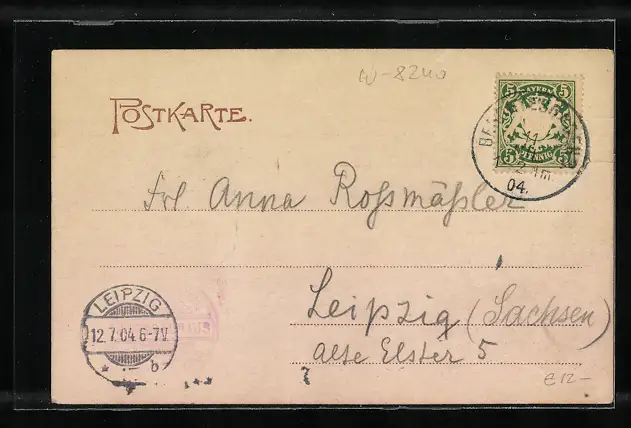 W-8240
POSTKARTE.
5 BAYERN 5
5 PFENNIG 5
11
2 Nm.
04.
Frl. Anna Roßmäßler
Leipzig (Sachsen)
alte Elster 5
LEIPZIG
12.7.04.6-7V.
* b
€12-